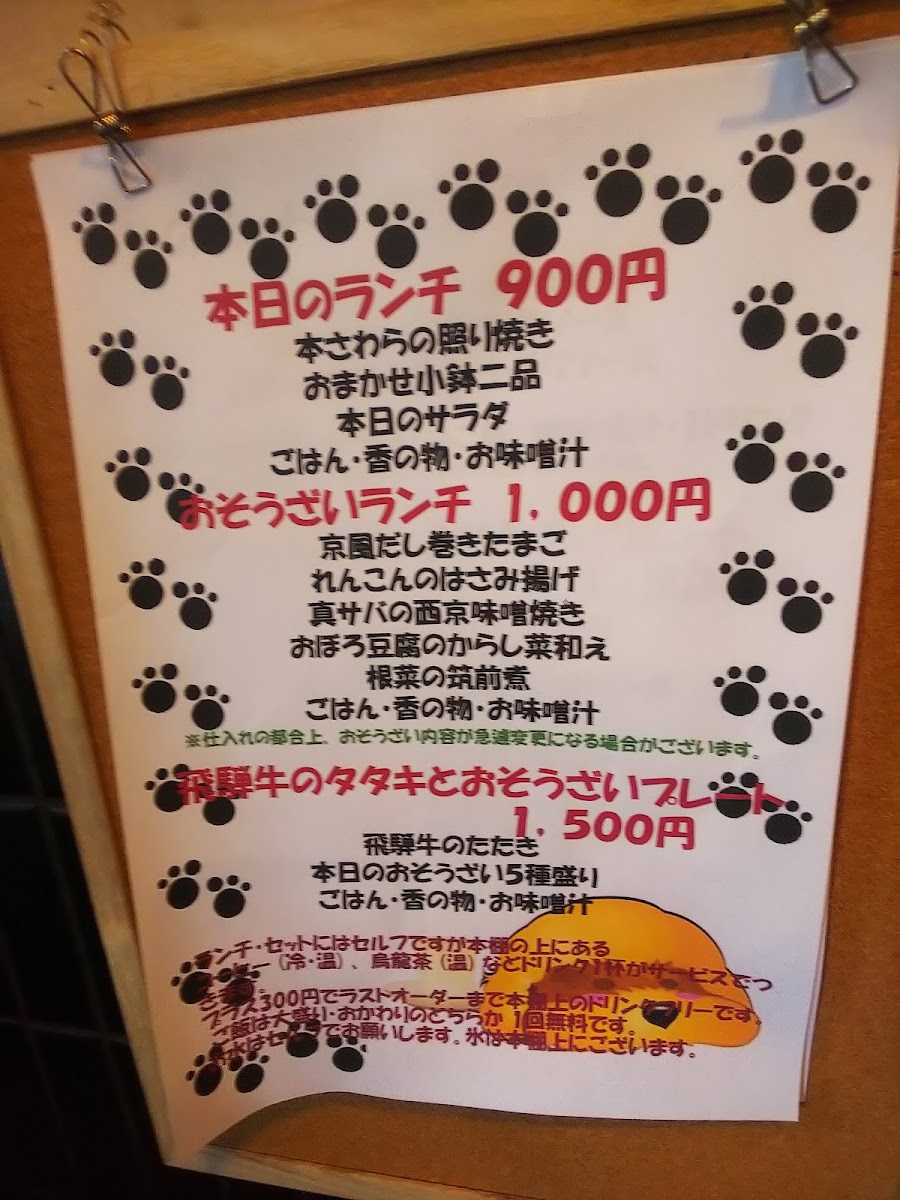 本日のランチ 900円
本さわらの照り焼き
おまかせ小鉢二品
本日のサラダ
ごはん・香の物・お味噌汁
おそうざいランチ 1,000円
京風だし巻きたまご
れんこんのはさみ揚げ
真サバの西京味噌焼き
おぼろ豆腐のからし菜和え
根菜の筑前煮
ごはん・香の物・お味噌汁
※仕入れの都合上、おそうざい内容が急遽変更になる場合がございます。
飛騨牛のタタキとおそうざいプレート
1,500円
飛騨牛のたたき
本日のおそうざい5種盛り
ごはん・香の物・お味噌汁
ランチ・セットにはセルフですが本棚の上にある
コーヒー(冷・温)、烏龍茶(温)などドリンク1杯がサービスでつ
きます。
プラス300円でラストオーダーまで本棚上のドリンクフリーです。
ご飯は大盛り・おかわりのどちらか1回無料です。
お水はセルフでお願いします。氷は本棚上にございます。